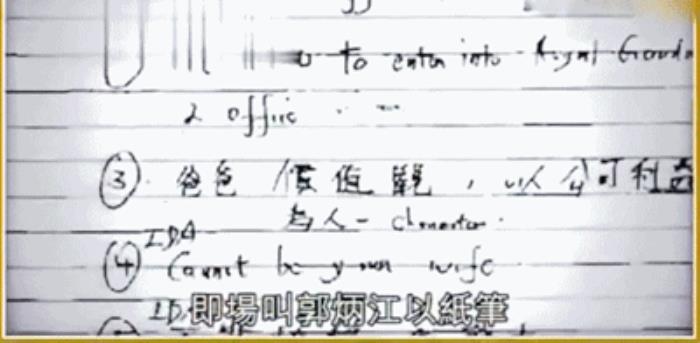 to enter into Royal Garden
2 offic
③ 爸爸 價值觀, 以公司利益
為人 - Character.
IDA
④ Cannot be your wife
IDA
即場叫郭炳江以紙筆